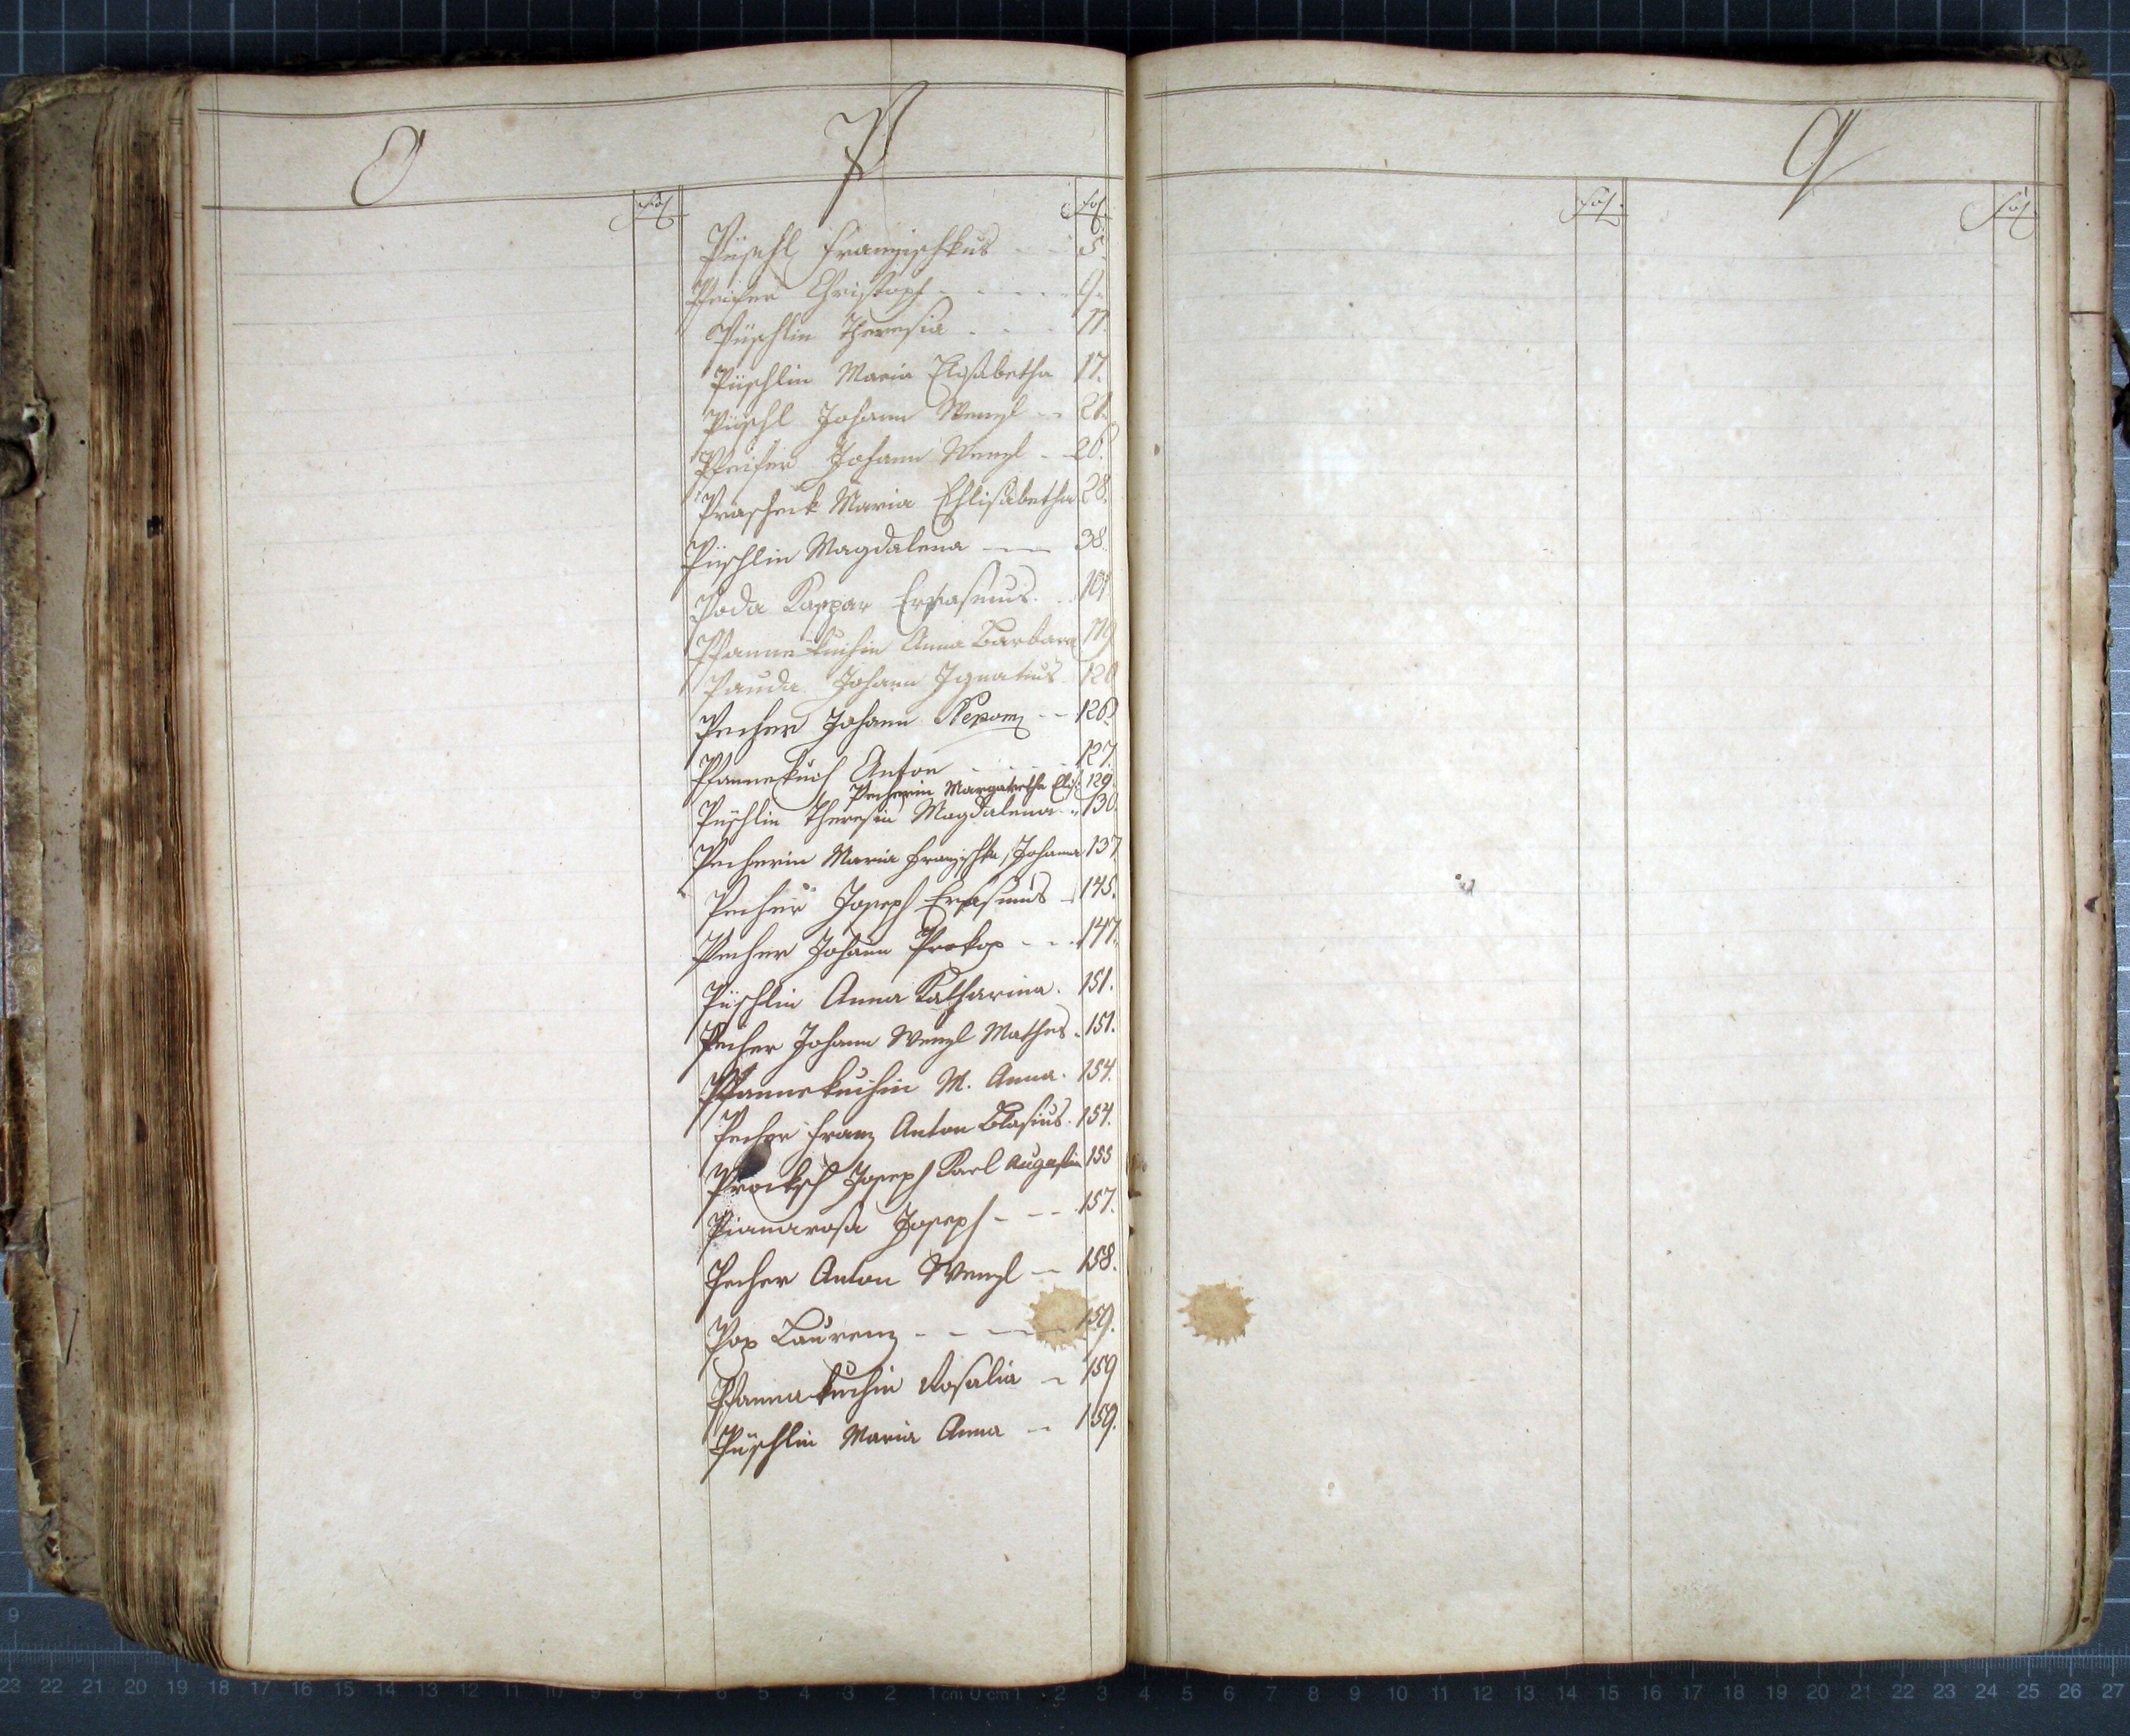 O
P
fol.
fol.
Püschl Franzischkus - - 5.
Pfeifer Christoph - - - - - 9.
Püschlin Theresia - - - 11
Püschlin Maria Elisabetha 17.
Püschl Johann Wenzl - - 21.
Pfeifer Johann Wenzl - - 26.
Prascheck Maria Ehlisabetha 28.
Püschlin Magdalena - - 38.
Poda Kaspar Erasmus. - . 101
Pfannekuchin Anna Barbara 119
Pauda Johann Ignatius 120
Pecher Johann Nepom - - 126.
Pfannekuch Anton - - - - - 127.
Pecherin Margaretha Elis: 129.
Püschlin Theresia Magdalena - 130
Pecherin Maria Franzischka Johanna 137
Pecher Joseph Erasmus - 145.
Pecher Johann Prokop - - - 147.
Püschlin Anna Katharina. 151.
Pecher Johann Wenzl Mathes. 151.
Pfannekuchin M. Anna. 154.
Pecher Franz Anton Blasius. 154.
Procksch Joseph Karl Augustin 155
Pianarosa Joseph - - - 157.
Pecher Anton Wenzl - 158.
Pop Laurenz - - - - 159.
Pfannakuchin Rosalia - 159
Püschlin Maria Anna - 159.
Q
fol.
fol.
9
23 22 21 20 19 18 17 16 15 14 13 12 11 10 9 8 7 6 5 4 3 2 1 cm 0 cm 1 2 3 4 5 6 7 8 9 10 11 12 13 14 15 16 17 18 19 20 21 22 23 24 25 26 27